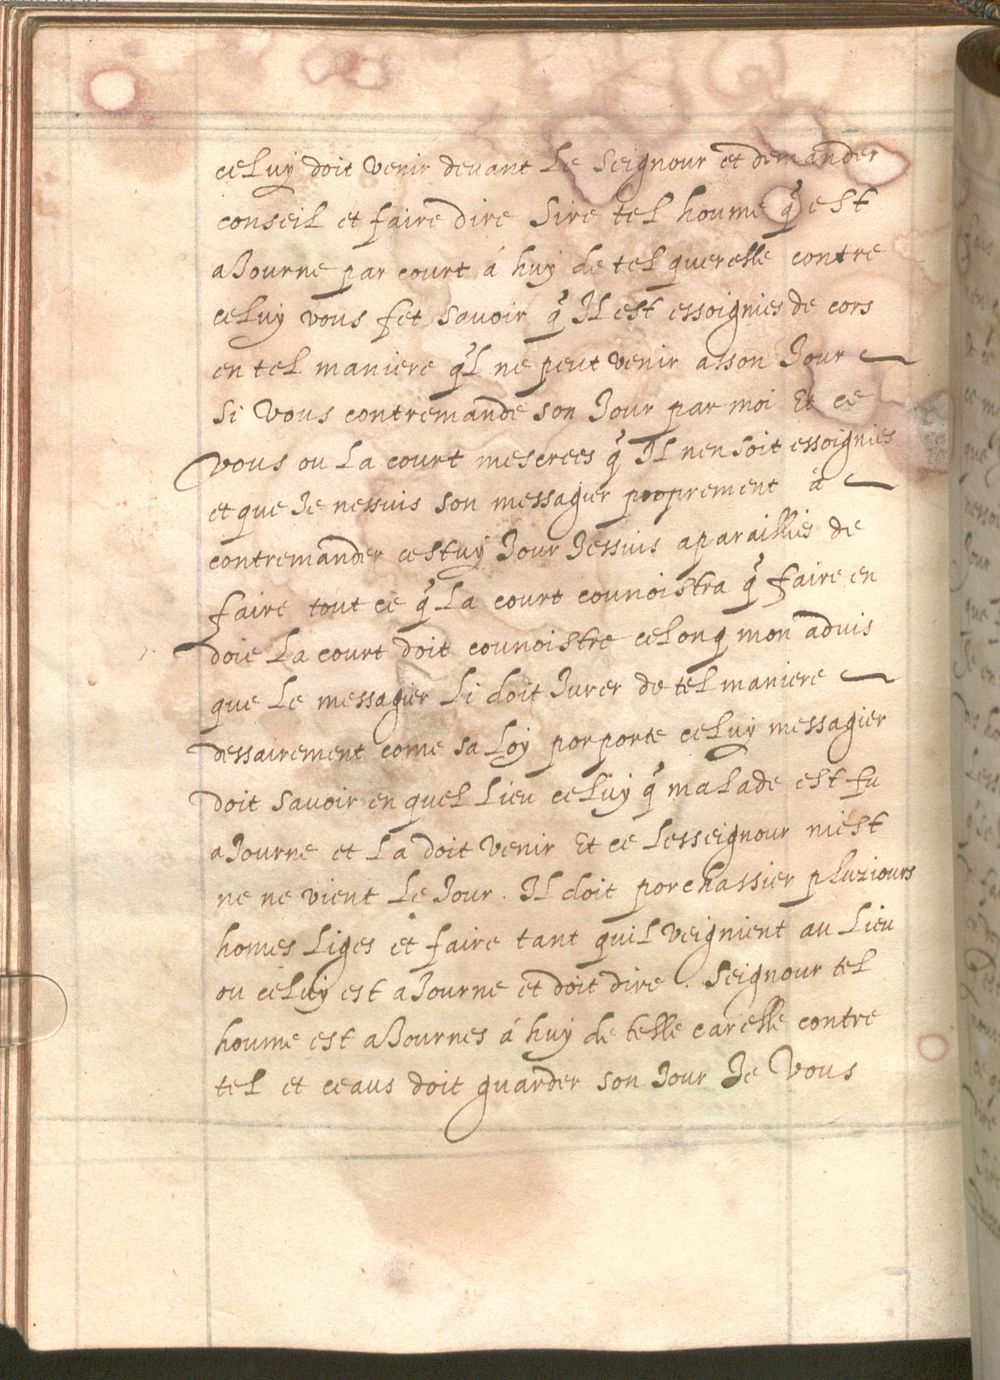 celuy doit venir deuant Le Seignour et demander
conseil et faire dire Sire tel houme q̃ est
aJourne par court á huy de tel querelle contre
celuy vous fet savoir q̃ Jl est essoignies de cors
en tel maniere q̃l ne peut venir asson Jour
Si vous contremande son Jour par moi Et ce
vous ou La court mescrees q̃ Jl nen soit essoignies
et que Je nessuis son messagier proprement á
contremander cestuy Jour Jessuis aparaillies de
faire tout ce q̃ La court counoistra q̃ faire en
doie La court doit counoistre celonq mon aduis
que Le messagier Li doit Jurer de tel maniere
dessairement come sa Loy porporte celuy messagier
doit savoir en quel Lieu celuy q̃ malade est fu
aJourne et La doit venir Et ce Lesseignour niest
ne ne vient Le Jour. Jl doit porchassier pluziours
homes Liges et faire tant quil veignient au Lieu
ou celuy est aJourne et doit dire. Seignour tel
houme est aJournes á huy de telle carelle contre
tel et ceaus doit guarder son Jour Je vous